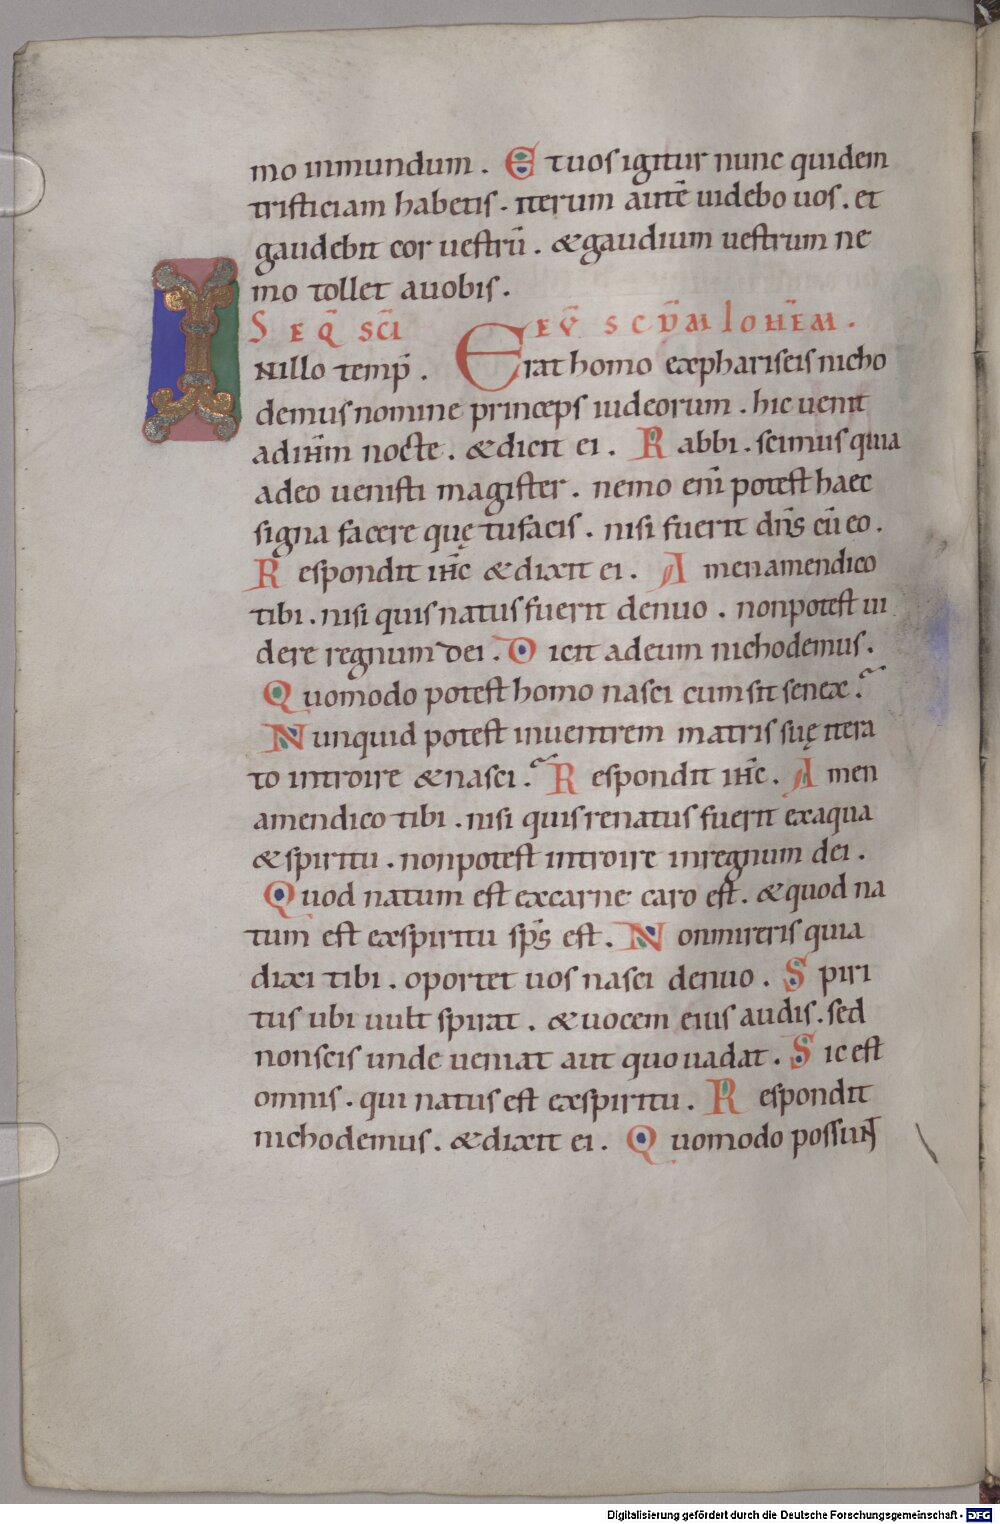 mo inmundum . Et uos igitur nunc quidem
tristiciam habetis . iterum autē uidebo uos . et
gaudebit cor uestrū . & gaudium uestrum ne
mo tollet auobis .
SEQ̄ SC̄I EV̄ SCDM̄ IOHEM̄ .
INillo temp̄ . Erat homo expharisęis nicho
demus nomine princeps iudeorum . hic uenit
ad ihm̄ nocte . & dicit ei . Rabbi . scimus quia
adeo uenisti magister . nemo eni̅ potest haec
signa facere quę tu facis . nisi fuerit dn̄s cū eo .
Respondit ihc̄ & dixit ei . Amen amen dico
tibi . nisi quis natus fuerit denuo . non potest ui
dere regnum dei . Dicit ad eum nichodemus .
Quomodo potest homo nasci cum sit senex .
Nunquid potest inuentrem matris suę itera
to introire & nasci . Respondit ihc̄ . Amen
amen dico tibi . nisi quis renatus fuerit exaqua
& spiritu . non potest introire inregnum dei .
Quod natum est excarne caro est . & quod na
tum est exspiritu sps̄ est . Non mireris quia
dixi tibi . oportet uos nasci denuo . Spiri
tus ubi uult spirat . & uocem eius audis . sed
non scis unde ueniat aut quo uadat . Sic est
omnis . qui natus est exspiritu . Respondit
nichodemus . & dixit ei . Quomodo possunt
Digitalisierung gefördert durch die Deutsche Forschungsgemeinschaft - DFG